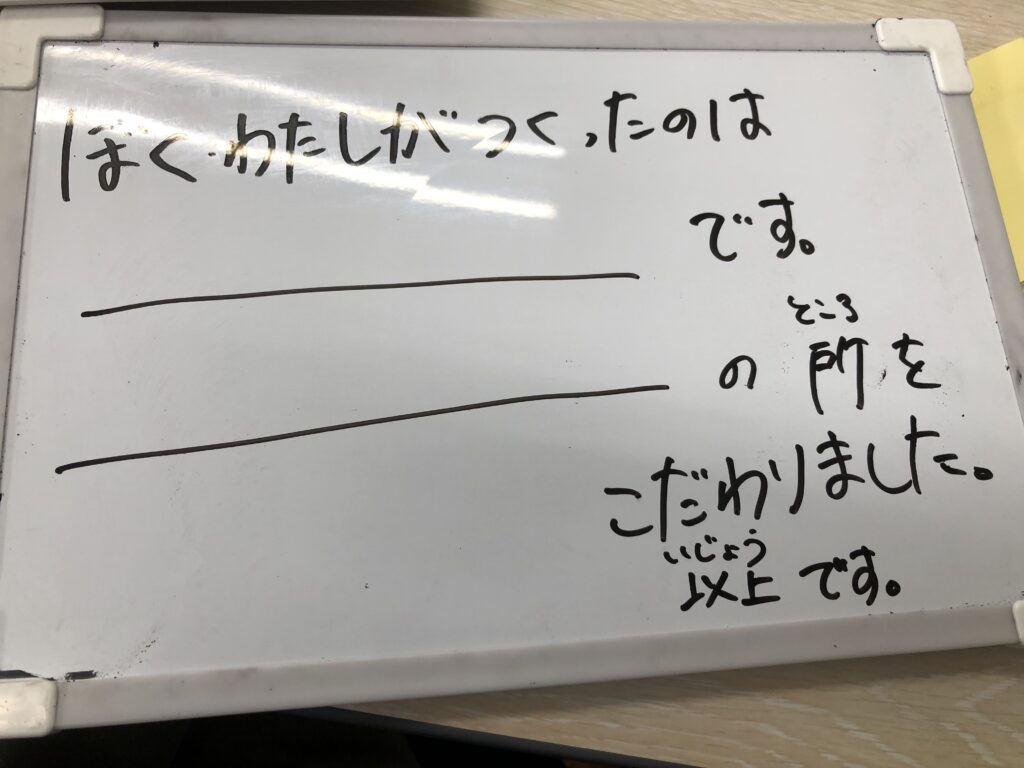 ぼく・わたしがつくったのは
です。
ところ
の所を
こだわりました。
いじょう
以上です。